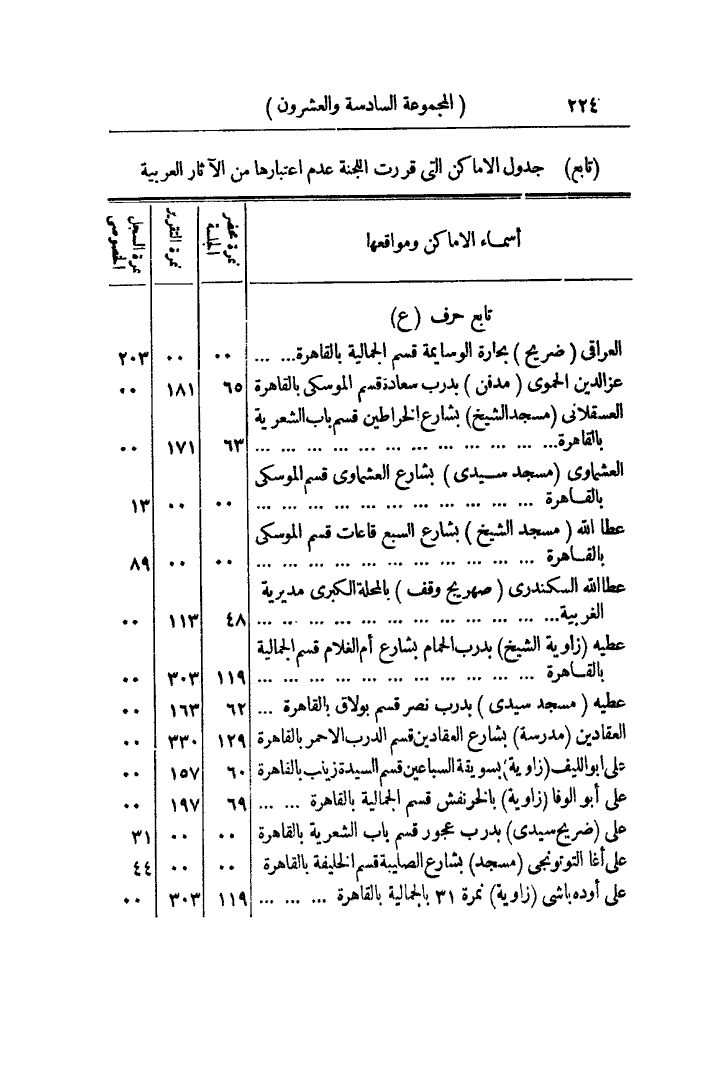 ٢٢٤ ( المجموعة السادسة والعشرون )
(تابع) جدول الاماكن التى قررت اللجنة عدم اعتبارها من الآثار العربية
أسماء الاماكن ومواقعها
نمرة محضر الجلسة
نمرة التقرير
نمرة السجل الخصوصى
تابع حرف (ع)
العراقى ( ضريح ) بحارة الوسايمة قسم الجمالية بالقاهرة... ... ٠٠ ٠٠ ٢٠٣
عزالدين الحموى ( مدفن ) بدرب سعادة قسم الموسكى بالقاهرة ٦٥ ١٨١ ٠٠
العسقلانى (مسجد الشيخ) بشارع الخراطين قسم باب الشعرية
بالقاهرة... ... ... ... ... ... ... ... ... ... ... ... ٦٣ ١٧١ ٠٠
العشماوى (مسجد سيدى ) بشارع العشماوى قسم الموسكى
بالقاهرة ... ... ... ... ... ... ... ... ... ... ... ٠٠ ٠٠ ١٣
عطا الله ( مسجد الشيخ ) بشارع السبع قاعات قسم الموسكى
بالقاهرة ... ... ... ... ... ... ... ... ... ... ... ٠٠ ٠٠ ٨٩
عطاالله السكندرى ( صهريج وقف ) بالمحلة الكبرى مديرية
الغربية... ... ... ... ... ... ... ... ... ... ... ... ٤٨ ١١٣ ٠٠
عطيه (زاوية الشيخ) بدرب الحمام بشارع أم الغلام قسم الجمالية
بالقاهرة ... ... ... ... ... ... ... ... ... ... ... ١١٩ ٣٠٣ ٠٠
عطيه ( مسجد سيدى ) بدرب نصر قسم بولاق بالقاهرة ... ٦٢ ١٦٣ ٠٠
العقادين (مدرسة) بشارع العقادين قسم الدرب الاحمر بالقاهرة ١٢٩ ٣٣٠ ٠٠
على ابو الليف (زاوية) بسويقة السباعين قسم السيدة زينب بالقاهرة ٦٠ ١٥٧ ٠٠
على أبو الوفا (زاوية) بالخرنفش قسم الجمالية بالقاهرة ... ... ٦٩ ١٩٧ ٠٠
على (ضريح سيدى) بدرب عجور قسم باب الشعرية بالقاهرة ٠٠ ٠٠ ٣١
على أغا التوتونجى (مسجد) بشارع الصليبة قسم الخليفة بالقاهرة ٠٠ ٠٠ ٤٤
على أوده باشى (زاوية) نمرة ٣١ بالجمالية بالقاهرة ... ... ... ١١٩ ٣٠٣ ٠٠